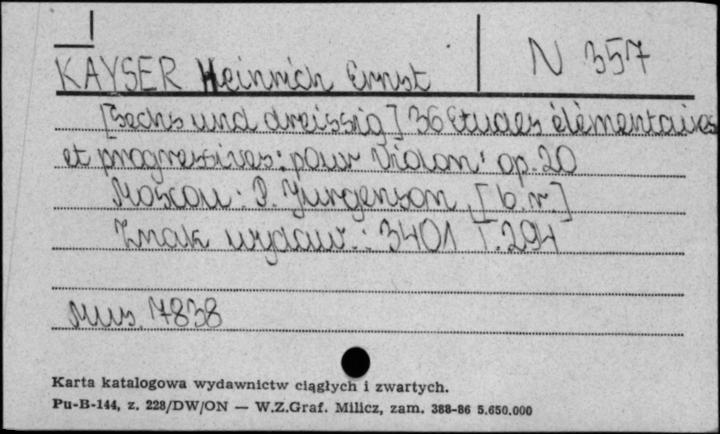 N 357
KAYSER Heinrich Ernst
[Sechs und dreissig] 36 Etudes élémentaires
et progressives: pour Violon: op. 20
Moscou: P. Jurgenson, [b.r.]
Znak wydaw.: 3401 T. 294
Mus. 7838
Karta katalogowa wydawnictw ciągłych i zwartych.
Pu-B-144, z. 228/DW/ON — W.Z.Graf. Milicz, zam. 388-86 5.650.000